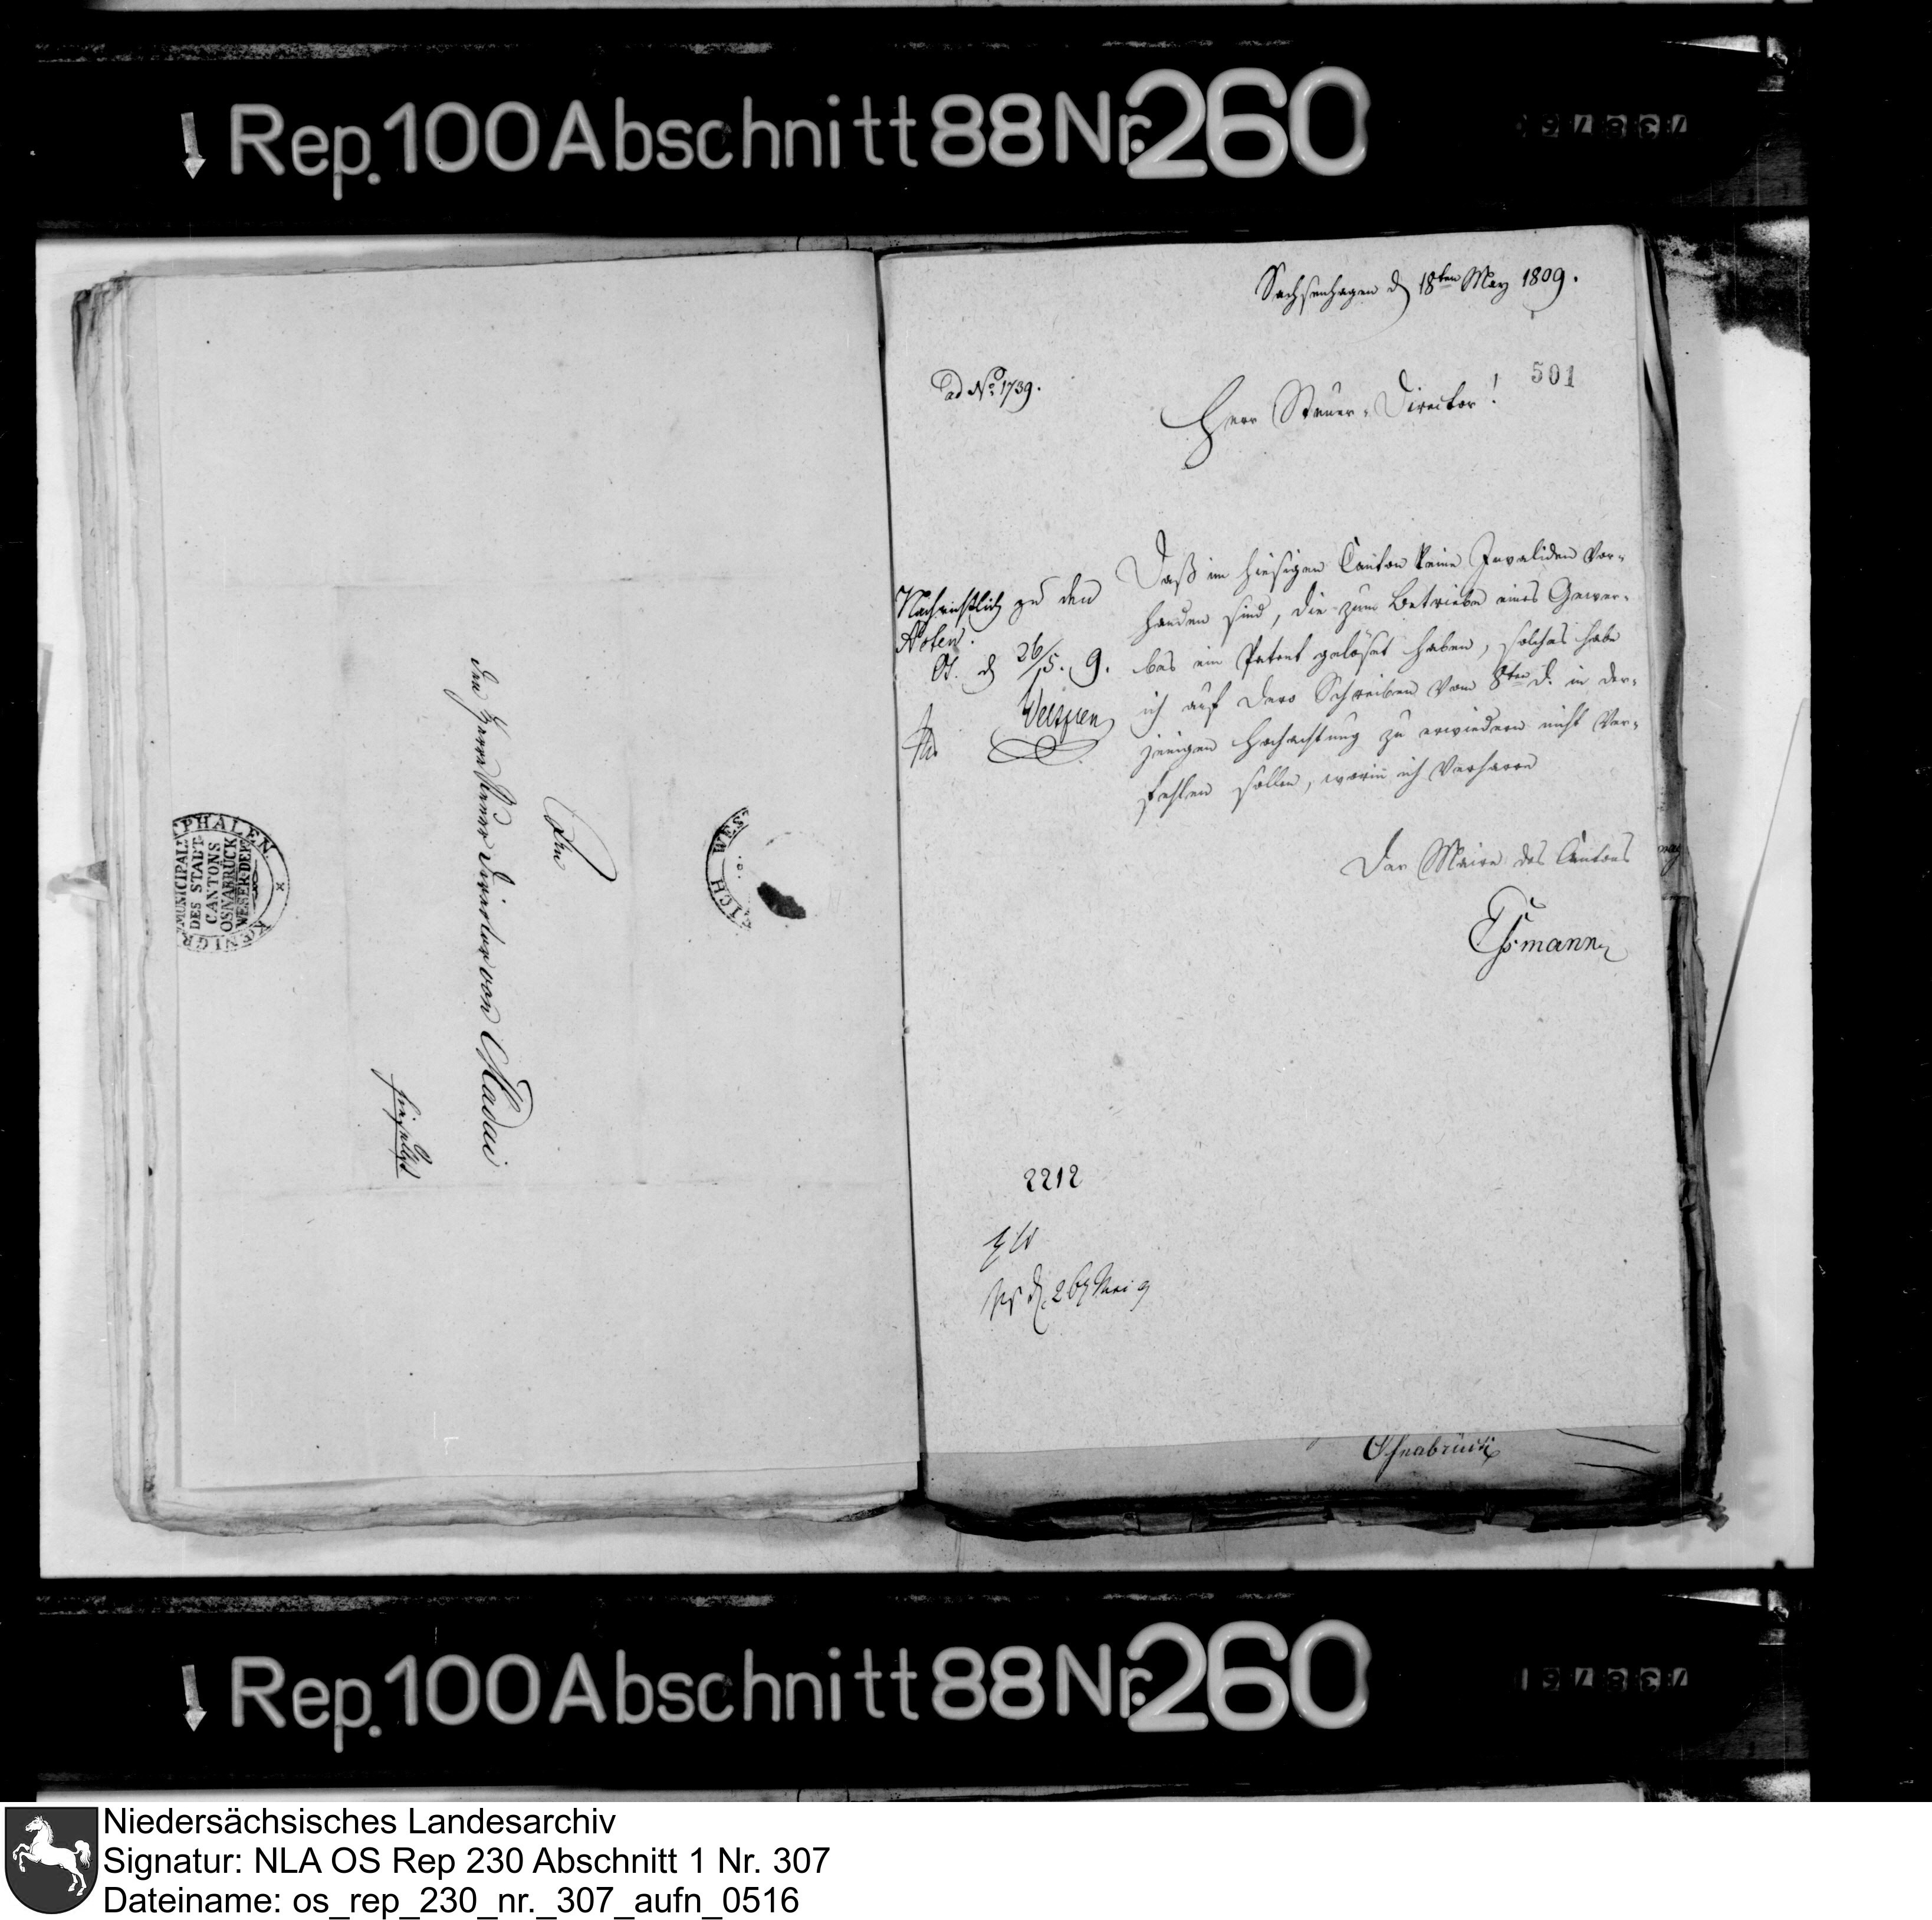 Rep. 100 Abschnitt 88 Nr. 260
An
den Herrn Steuer Director von Madai
hieselbst
PHALEN
KŒNIGR
MUNICIPALT
DES STADT
CANTONS
OSNABRÜCK
WESER-DEPT
ICH WEST
Sachsenhagen d 18ten May 1809.
501
ad No 1739.
Herr Steuer-Director!
Daß im hiesigen Canton keine Invaliden vor-
handen sind, die zum Betriebe eines Gewer-
bes ein Patent gelöset haben, solches habe
ich auf Dero Schreiben vom 8ten d. in der-
jenigen Hochachtung zu erwiedern nicht ver-
fehlen sollen, worin ich verharre
Der Maire des Cantons
Nachrichtlich zu den
Acten.
Os. d 26/5. 9.
2212
d. 26 Mai 9
Osnabrück
Rep. 100 Abschnitt 88 Nr. 260
Niedersächsisches Landesarchiv
Signatur: NLA OS Rep 230 Abschnitt 1 Nr. 307
Dateiname: os_rep_230_nr._307_aufn_0516